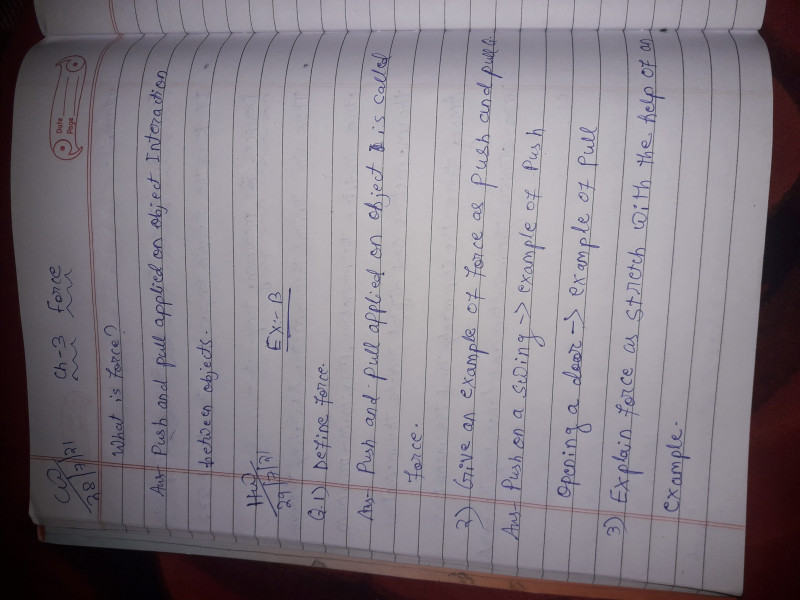 Date
Page
CW
28/7/21
Ch-3 Force
What is force?
Ans- Push and pull applied on object Interaction
between objects.
HW
29/7/21
Ex:- B
Q.1) Define force.
Ans- Push and pull applied on object is called
force.
2) Give an example of force as push and pull.
Ans- Push on a swing -> example of Push
Opening a door -> example of Pull
3) Explain force as stretch with the help of an
example.